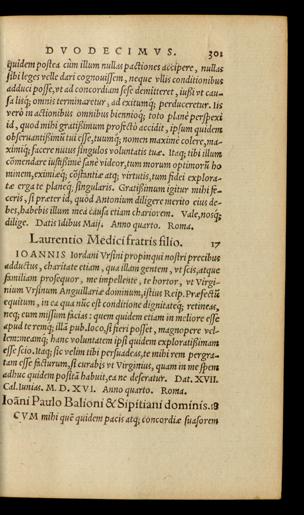 DVODECIMVS. 301
quidem postea cùm illum nullas pactiones accipere, nullas
sibi leges velle dari cognouissem, neque vllis conditionibus
adduci posse, vt ad concordiam sese demitteret, iußi vt cau-
sa lisq; omnis terminaretur, ad exitumq; perduceretur. Iis
verò in actionibus omnibus biennioq; toto planè perspexi
id, quod mihi gratißimum profectò accidit, ipsum quidem
obseruantißimũ tui esse, tuumq; nomen maximè colere, ma-
ximiq; facere nutus singulos voluntatis tuæ. Itaq; tibi illum
cõmendare iustißimè sanè videor, tum morum optimorũ ho
minem, eximiaeq; cõstantiæ atq; virtutis, tum fidei explora-
tæ erga te planeq́; singularis. Gratißimum igitur mihi fe-
ceris, si præter id, quòd Antonium diligere meritò eius de-
bes, habebis illum mea causa etiam chariorem. Vale, nosq;
dilige. Datis Idibus Maij. Anno quarto. Roma.
Laurentio Medici fratris filio. 17
IOANNIS Iordani Vrsini propinqui nostri precibus
adductus, charitate etiam, qua illam gentem, vt scis, atque
familiam prosequor, me impellente, te hortor, vt Virgi-
nium Vrsinum Anguillariæ dominum, istius Reip. Præfectũ
equitum, in ea qua nũc est conditione dignitateq; retineas,
neq; eum missum facias: quem quidem etiam in meliore esse
apud te remq; illã pub. loco, si fieri posset, magnopere vel-
lem: meamq; hanc voluntatem ipsi quidem exploratißimam
esse scio. Itaq; sic velim tibi persuadeas, te mihi rem pergra-
tam esse facturum, si curabis vt Virginius, quam in me spem
adhuc quidem positã habuit, ea ne deseratur. Dat. XVII.
Cal. Iunias. M. D. XVI. Anno quarto. Roma.
Ioãni Paulo Balioni & Sipitiani dominis. 18
CVM mihi quẽ quidem pacis atq; concordiæ suasorem